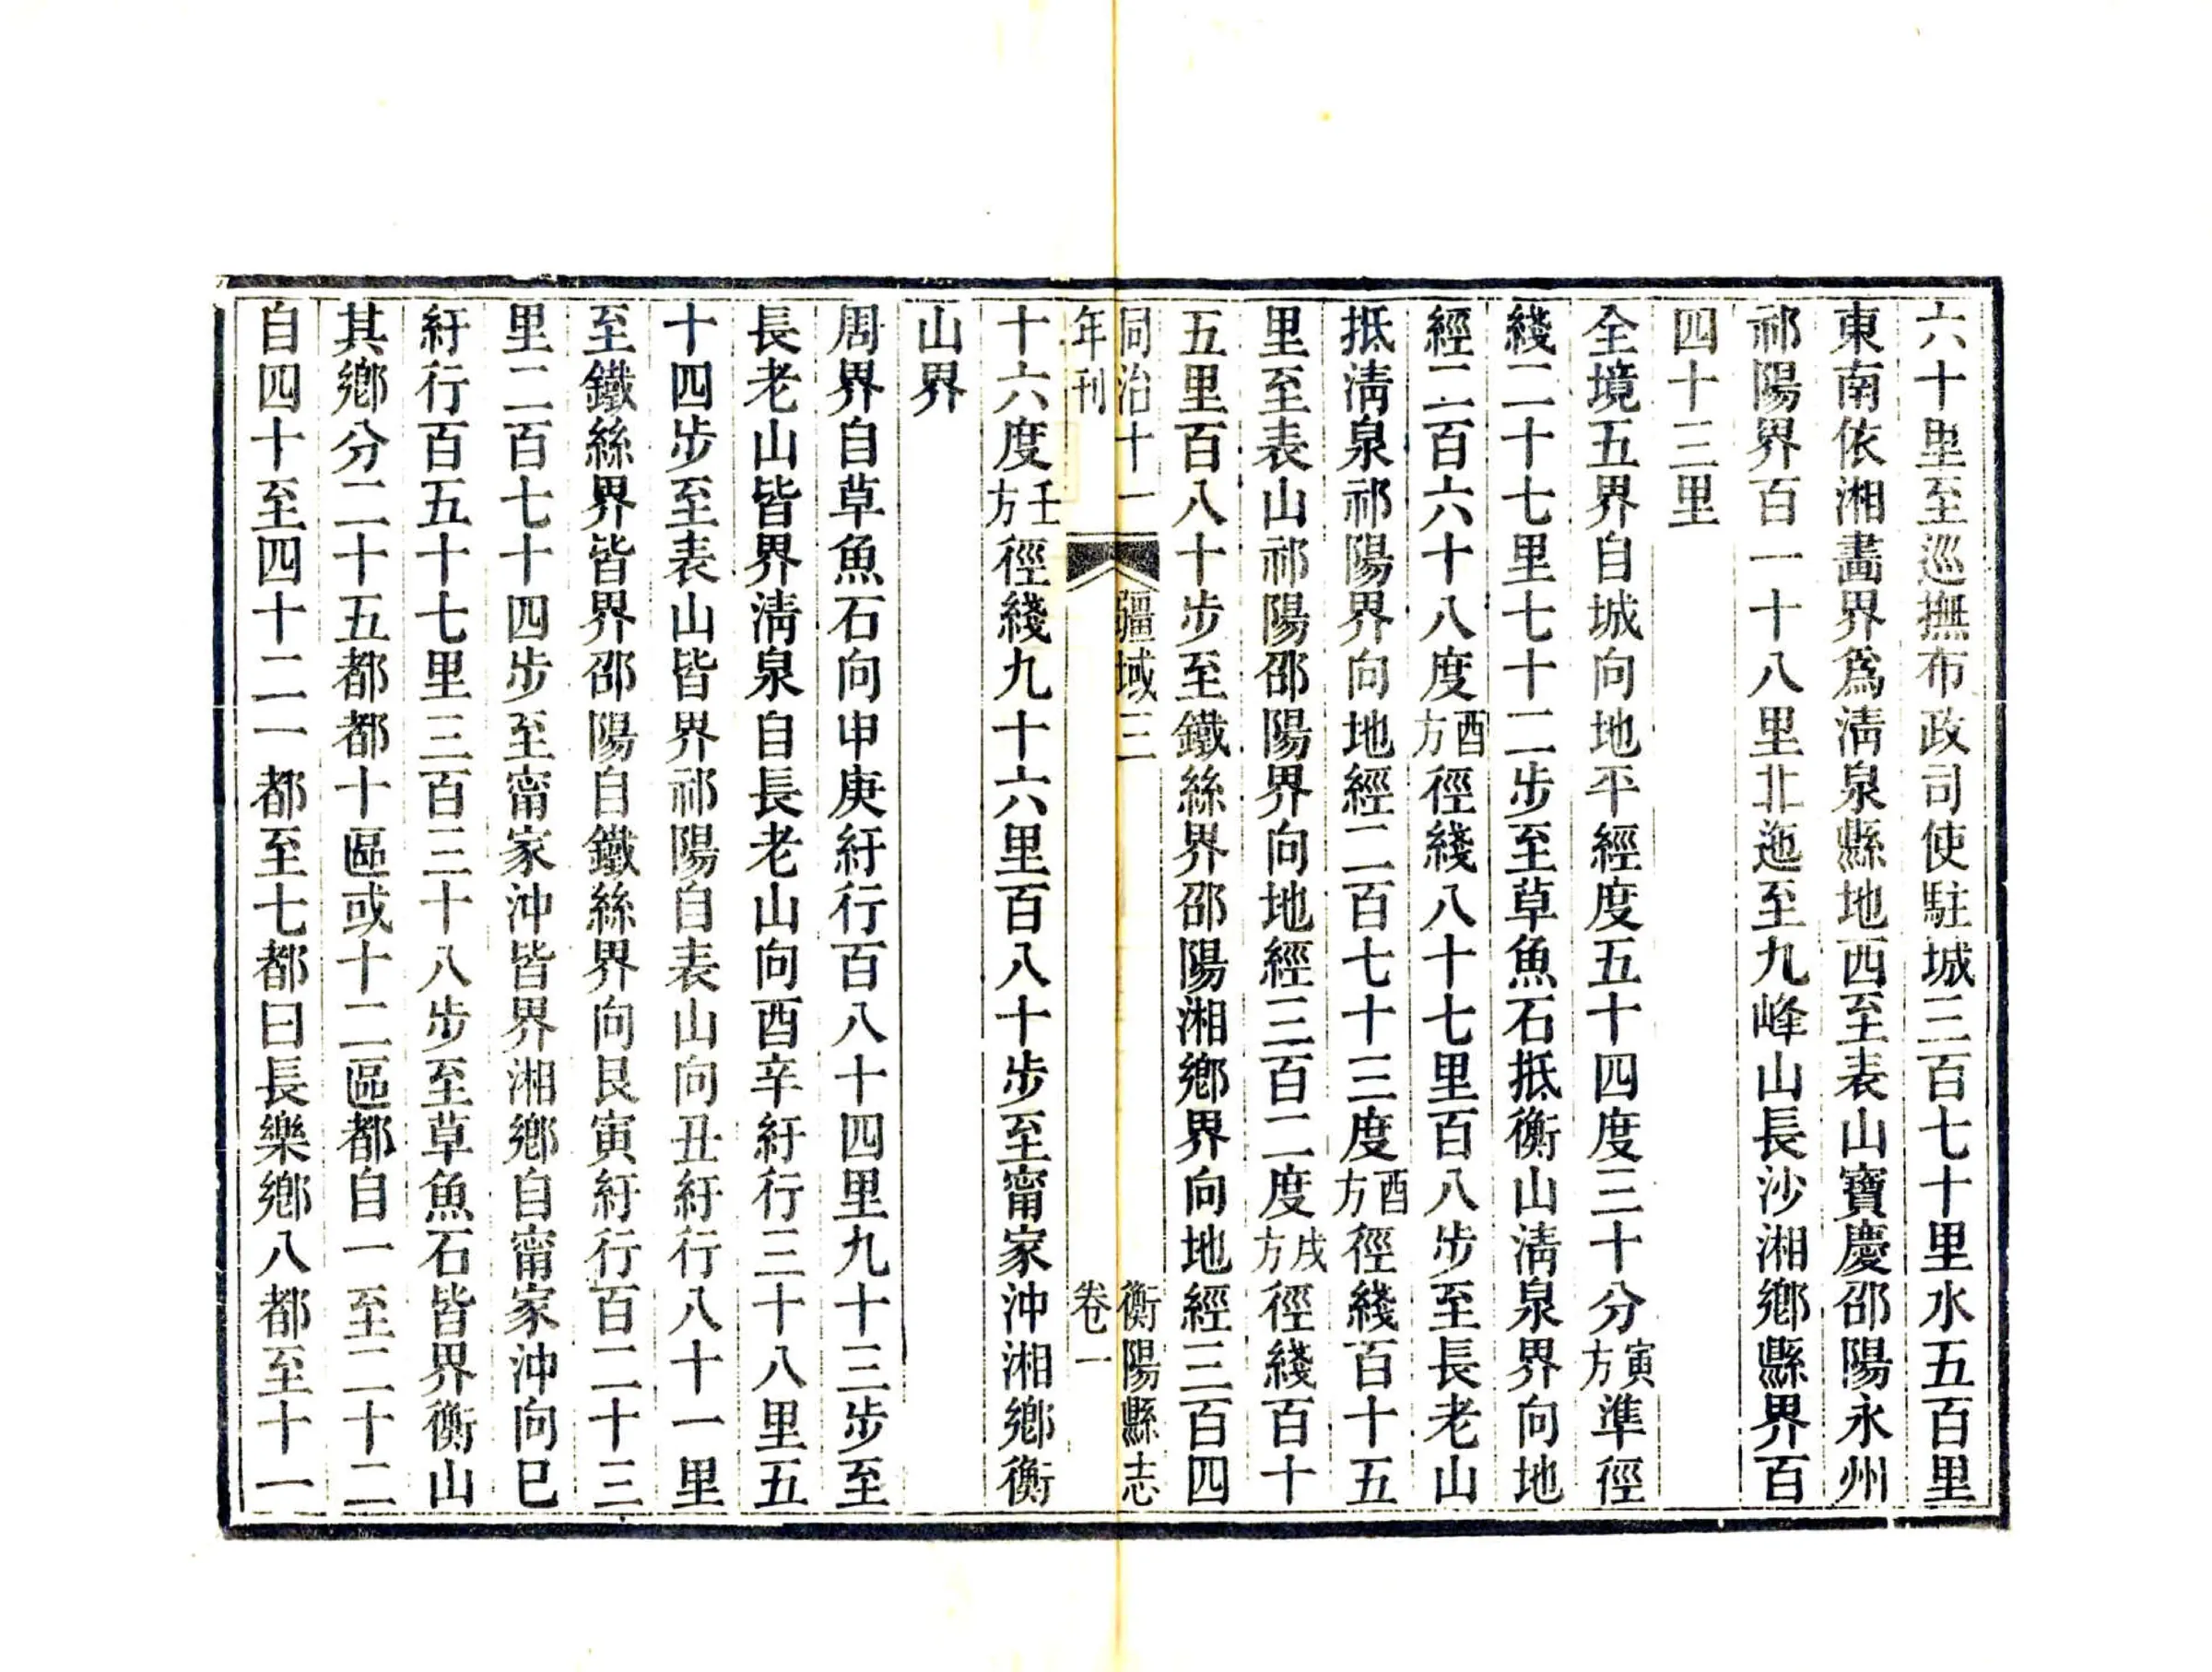 六十里至巡撫布政司使駐城三百七十里水五百里
東南依湘畫界爲淸泉縣地西至表山寶慶邵陽永州
祁陽界百一十八里北迤至九峰山長沙湘鄕縣界百
四十三里
全境五界自城向地平經度五十四度三十分寅方準徑
綫二十七里七十二步至草魚石抵衡山淸泉界向地
經二百六十八度酉方徑綫八十七里百八步至長老山
抵淸泉祁陽界向地經二百七十三度酉方徑綫百十五
里至表山祁陽邵陽界向地經三百二度戌方徑綫百十
五里百八十步至鐵絲界邵陽湘鄕界向地經三百四
同治十一 疆域三 衡陽縣志
年刊 卷一
十六度壬方徑綫九十六里百八十步至甯家沖湘鄕衡
山界
周界自草魚石向申庚紆行百八十四里九十三步至
長老山皆界淸泉自長老山向酉辛紆行三十八里五
十四步至表山皆界祁陽自表山向丑紆行八十一里
至鐵絲界皆界邵陽自鐵絲界向艮寅紆行百二十三
里二百七十四步至甯家沖皆界湘鄕自甯家沖向巳
紆行百五十七里三百三十八步至草魚石皆界衡山
其鄕分二十五都都十區或十二區都自一至二十二
自四十至四十二一都至七都曰長樂鄕八都至十一